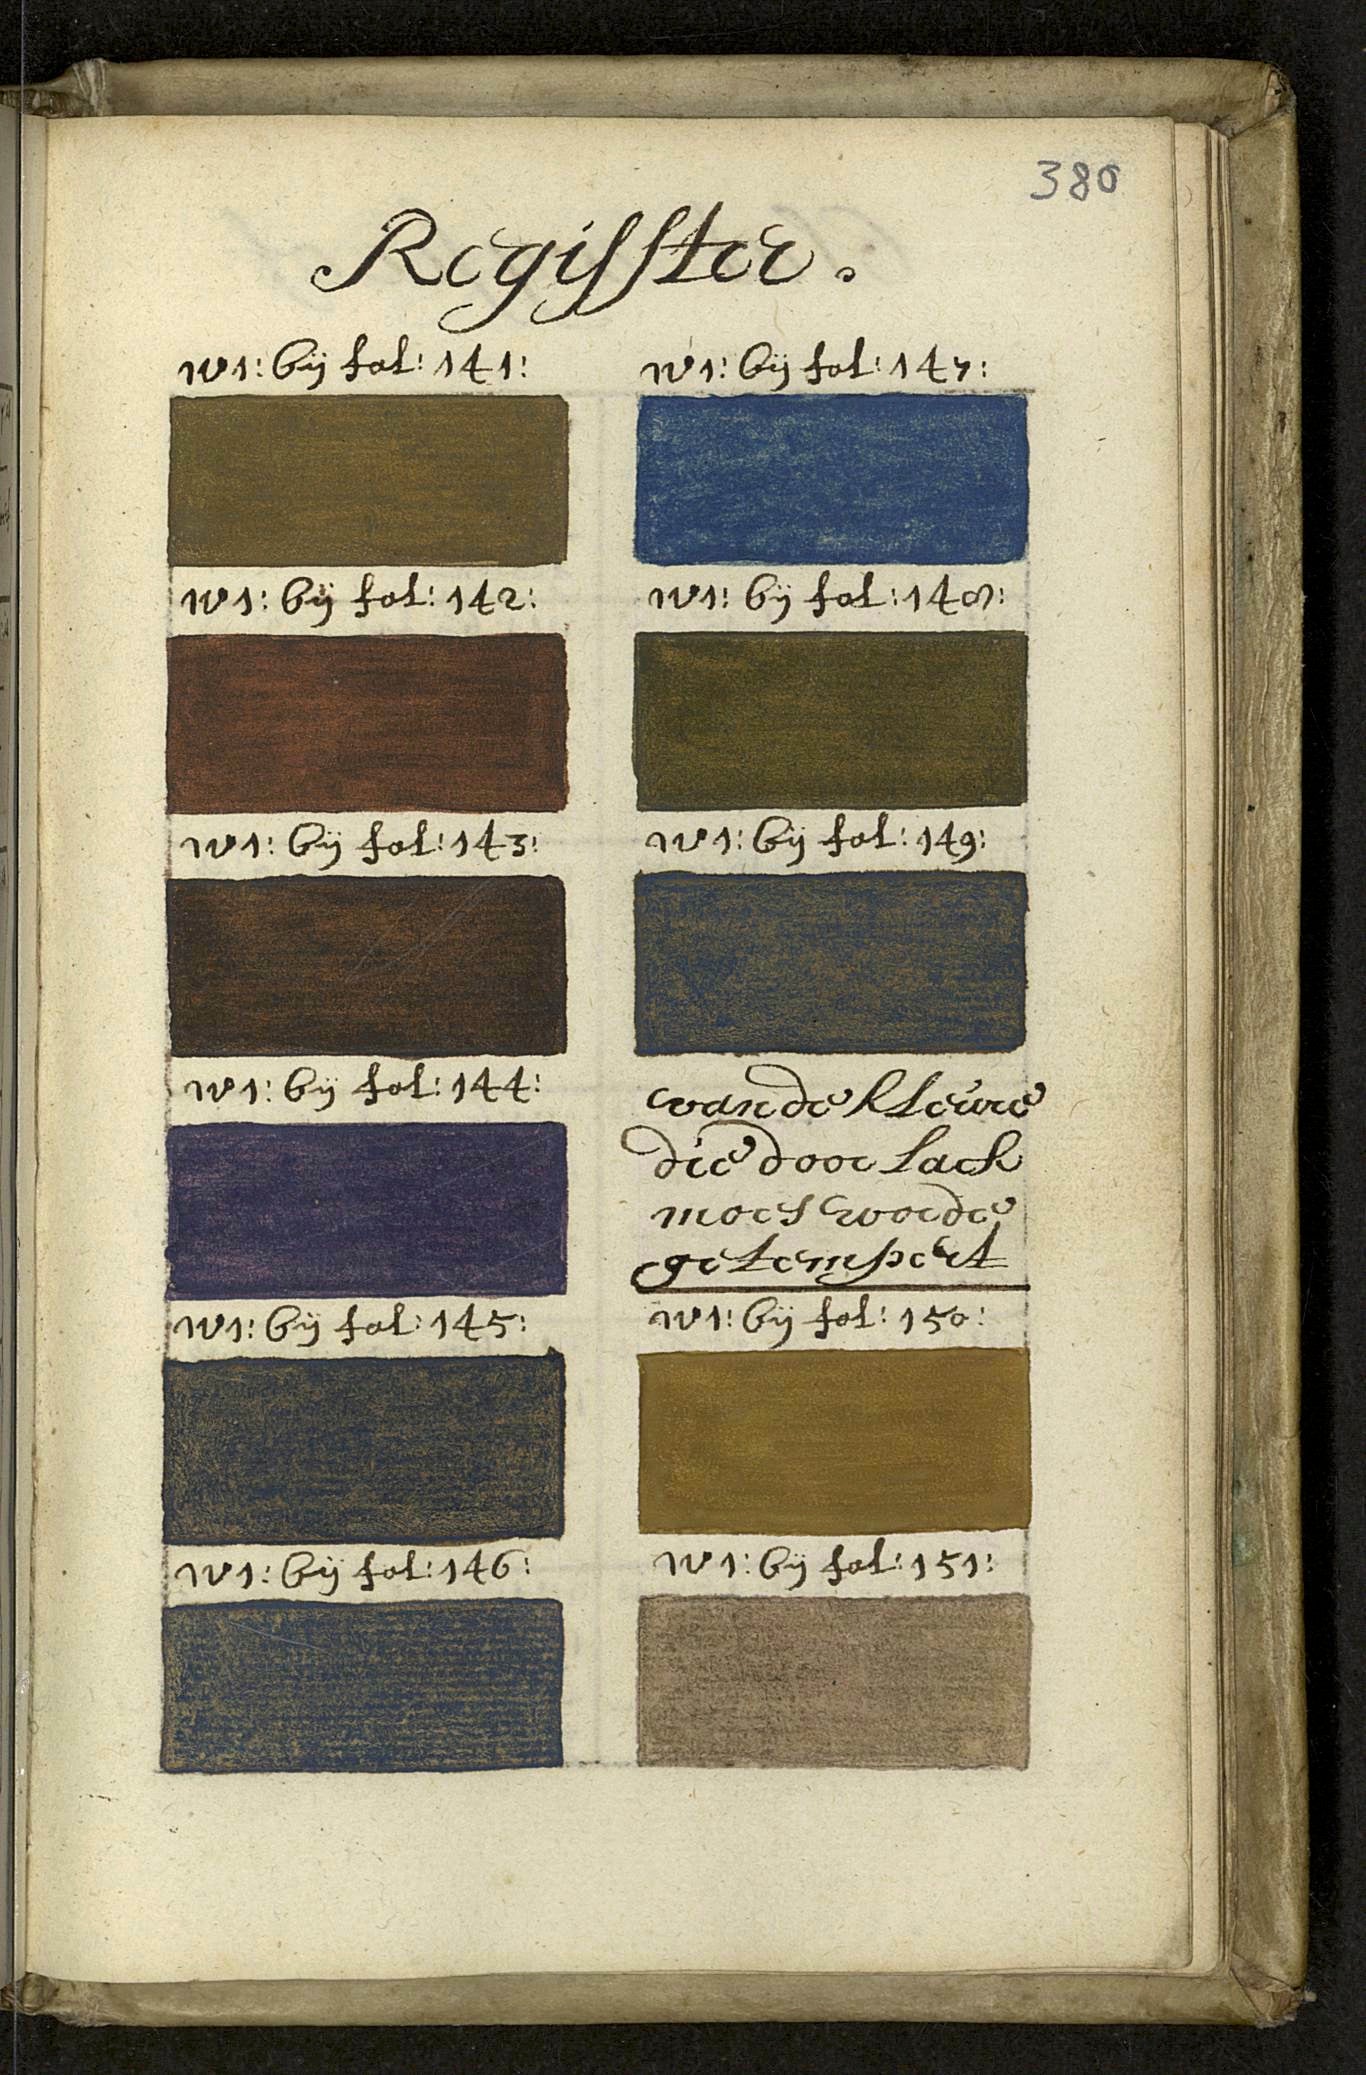 380
Regisster.
N1: bÿ fol: 141:
N1: bÿ fol: 142:
N1: bÿ fol: 143:
N1: bÿ fol: 144:
N1: bÿ fol: 145:
N1: bÿ fol: 146:
N1: bÿ fol: 147:
N1: bÿ fol: 148:
N1: bÿ fol: 149:
van de kleure
die door lack
moet worde
getempert
N1: bÿ fol: 150:
N1: bÿ fol: 151: